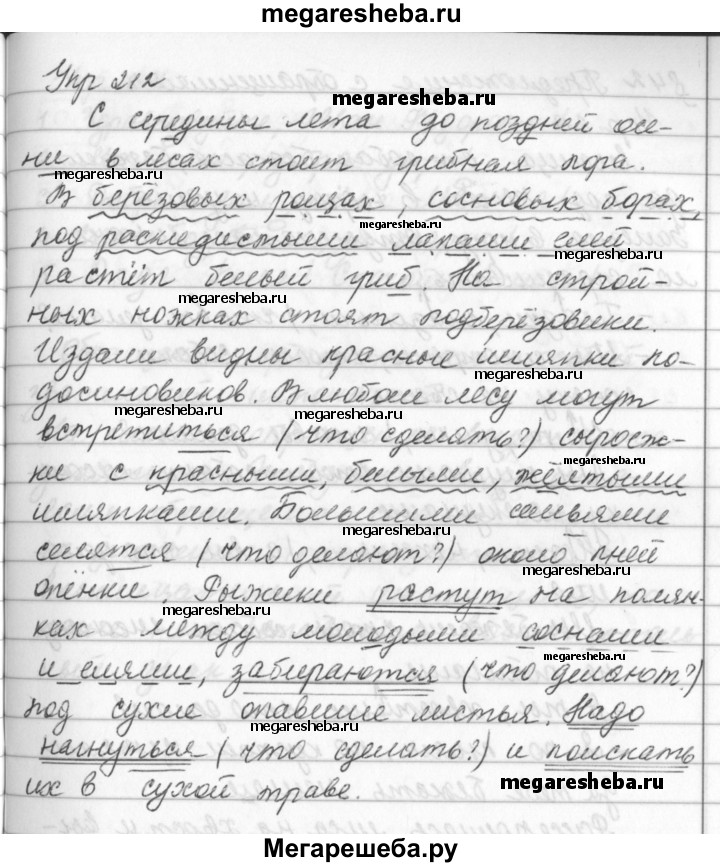 megaresheba.ru
Упр 212
megaresheba.ru
С середины лета до поздней осе-
ни в лесах стоит грибная пора.
megaresheba.ru
В берёзовых рощах, сосновых борах,
под раскидистыми лапами елей
растёт белый гриб. На строй-
megaresheba.ru megaresheba.ru
ных ножках стоят подберёзовики.
Издали видны красные шляпки по-
досиновиков. В любом лесу могут
megaresheba.ru megaresheba.ru
встретиться (что сделать?) сыроеж-
megaresheba.ru
ки с красными, белыми, жёлтыми
шляпками. Большими семьями
megaresheba.ru
селятся (что делают?) около пней
опёнки. Рыжики растут на полян-
megaresheba.ru
ках между молодыми соснами
megaresheba.ru
и елями, забираются (что делают?)
под сухие опавшие листья. Надо
megaresheba.ru
нагнуться (что сделать?) и поискать
их в сухой траве.
megaresheba.ru
Мегарешеба.ру